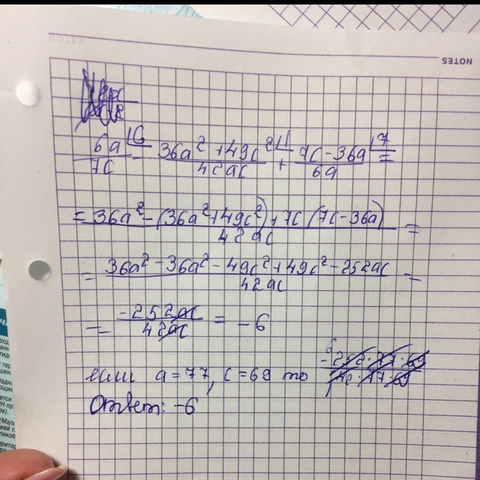 NOTES
6a/7c - (36a² + 49c²)/42ac + (7c - 36a)/6a =
= (36a² - (36a² + 49c²) + 7c (7c - 36a))/42ac =
= (36a² - 36a² - 49c² + 49c² - 252ac)/42ac =
= -252ac/42ac = -6
если a = 77, c = 69 то
Ответ: -6